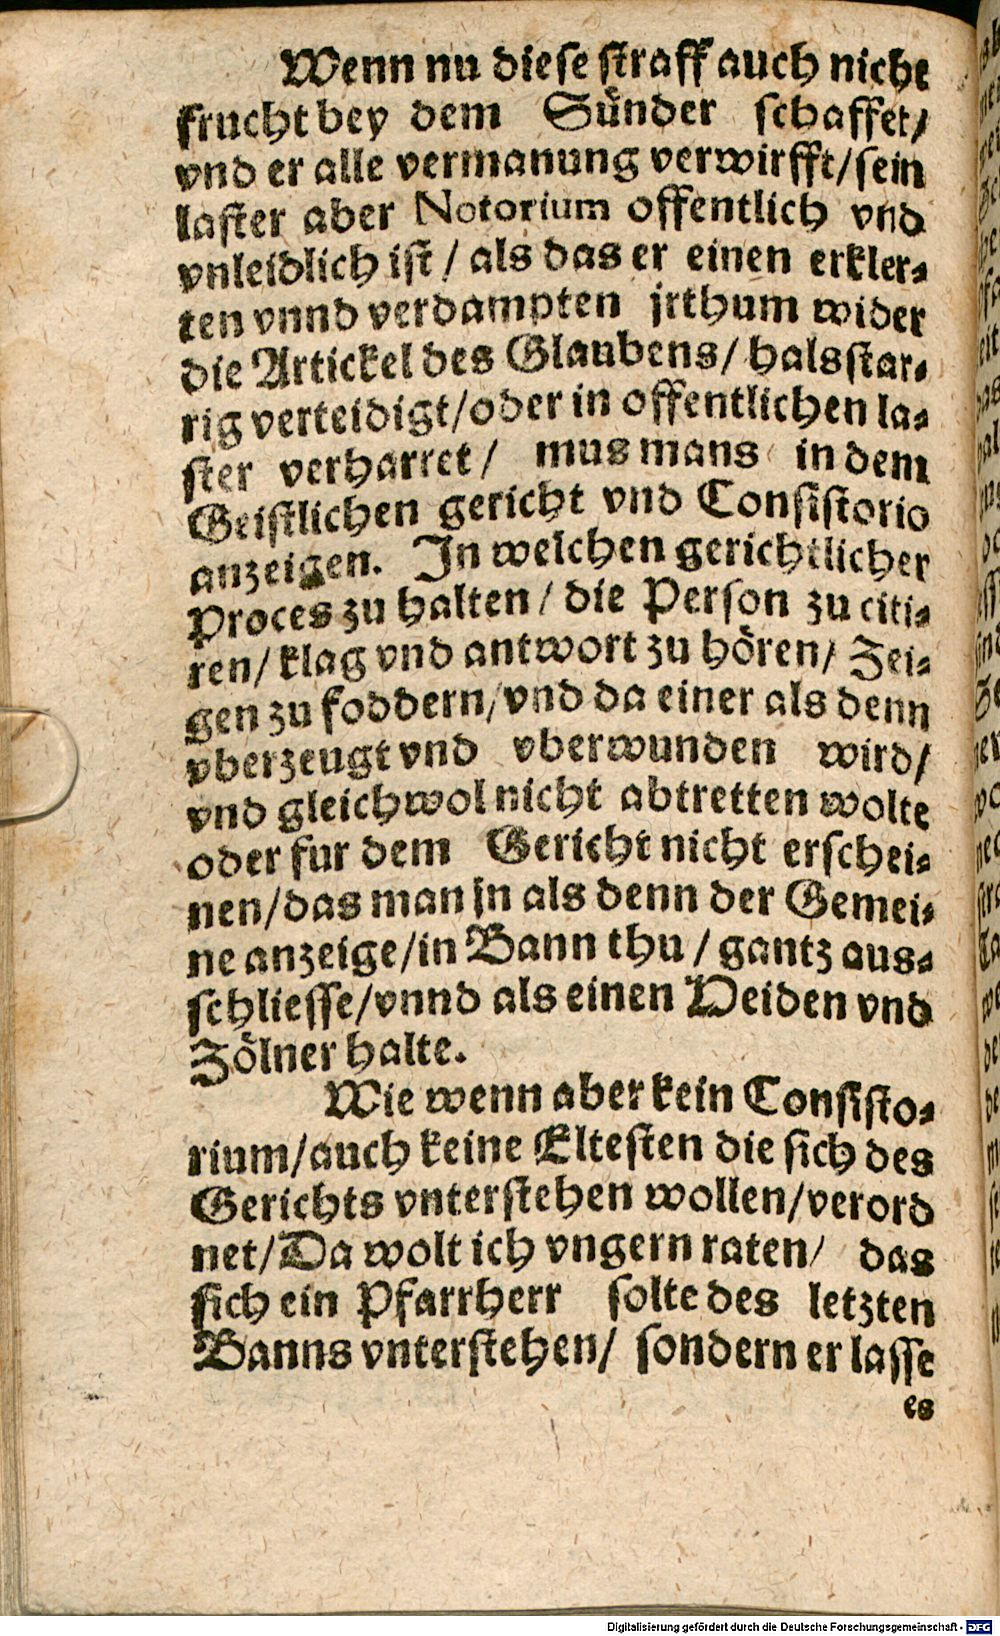 Wenn nu diese straff auch nicht
frucht bey dem Sünder schaffet/
vnd er alle vermanung verwirfft/sein
laster aber Notorium offentlich vnd
vnleidlich ist / als das er einen erkler⸗
ten vnnd verdampten jrthum wider
die Artickel des Glaubens/ halsstar⸗
rig verteidigt/oder in offentlichen la⸗
ster verharret/ mus mans in dem
Geistlichen gericht vnd Consistorio
anzeigen. In welchen gerichtlicher
Proces zu halten / die Person zu citi⸗
ren/ klag vnd antwort zu hören/ Zei⸗
gen zu foddern/vnd da einer als denn
vberzeugt vnd vberwunden wird/
vnd gleichwol nicht abtretten wolte
oder fur dem Gericht nicht erschei⸗
nen/das man jn als denn der Gemei⸗
ne anzeige/in Bann thu / gantz aus⸗
schliesse/vnnd als einen Heiden vnd
Zölner halte.
Wie wenn aber kein Consisto⸗
rium/auch keine Eltesten die sich des
Gerichts vnterstehen wollen/verord
net/Da wolt ich vngern raten/ das
sich ein Pfarrherr solte des letzten
Banns vnterstehen/ sondern er lasse
es
Digitalisierung gefördert durch die Deutsche Forschungsgemeinschaft - DFG